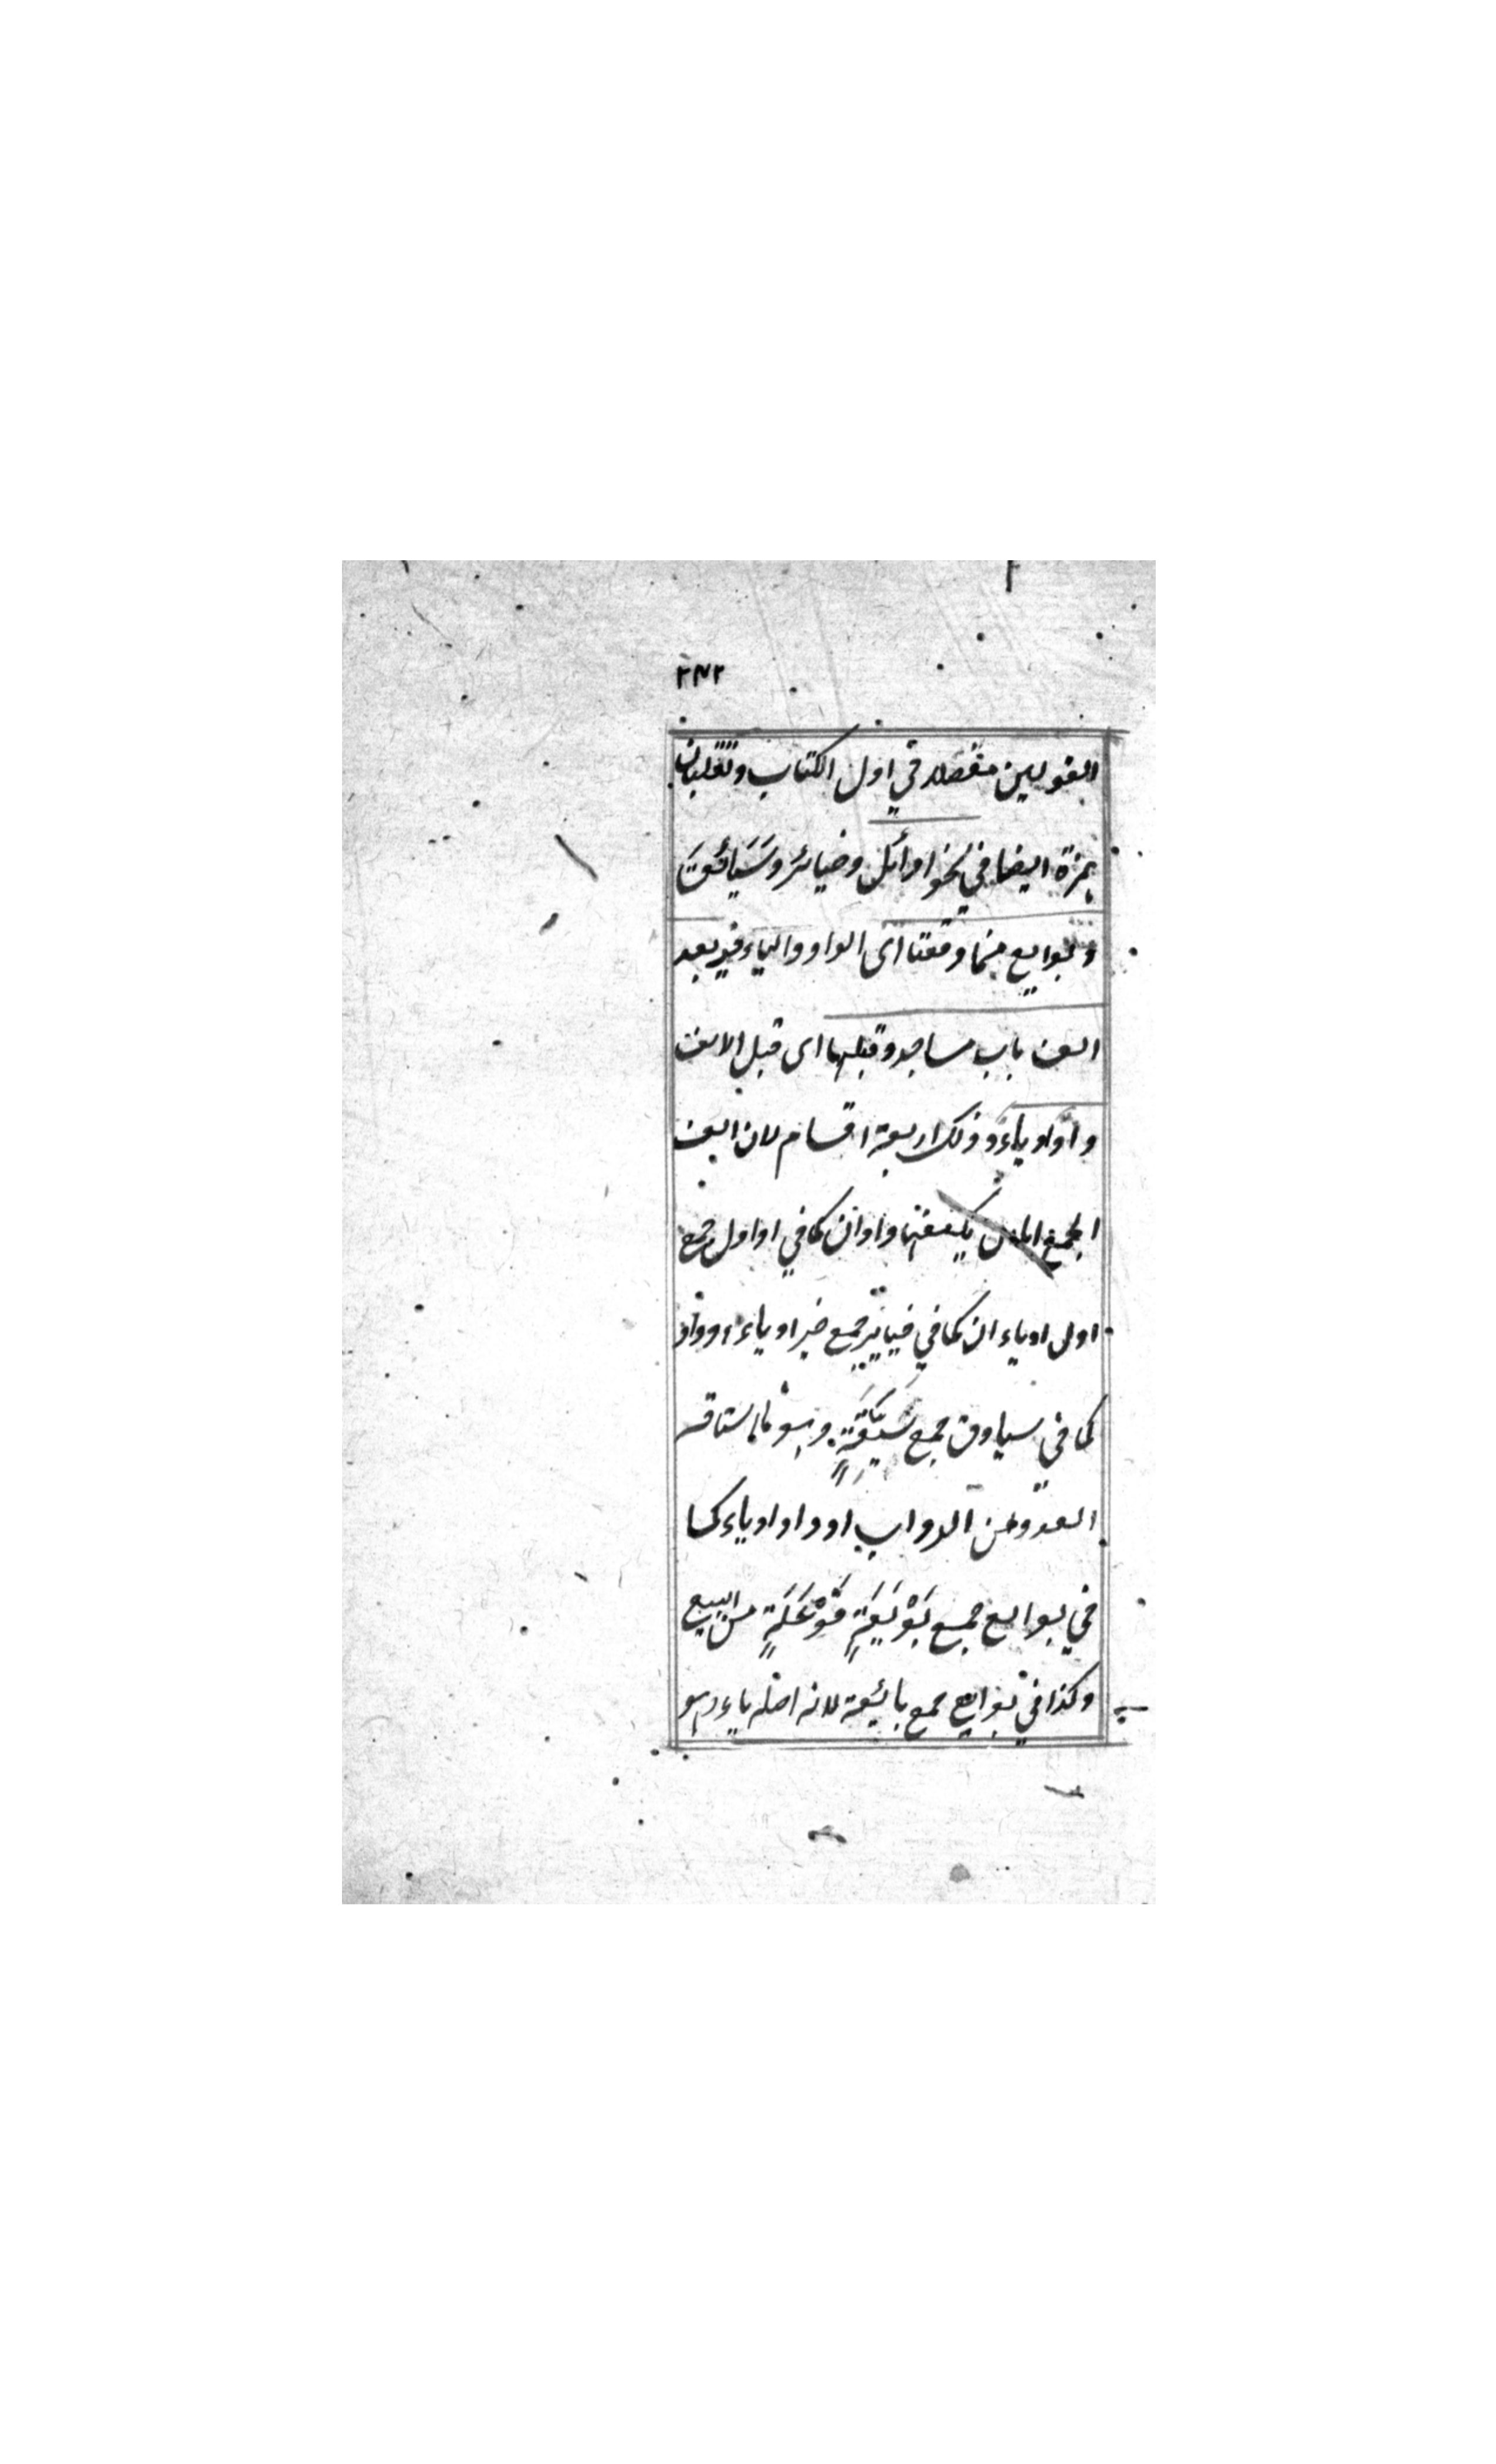 ٢٤٢
القولين مفصلا في اول الكتاب وتقلبان
همزة ايضا في نحو اوائل وخيائر وسَيَائقَ
وبوايع مما وقعتا اى الواو والياء فيه بعد
الف باب مساجد وقبلها اى قبل الالف
واو او ياء وذلك اربعة اقسام لان الف
الجمع يكتنفها واوان كما في اواول جمع
اول او ياء ان كما في خيايير جمع خير او ياء و واو
كما في سياوق جمع سَيِّقَةٍ وهو ما استاقه
العدو من الدواب او واو او ياء كما
في بوايع جمع بَوْيَعَةٍ فَوْعَلَةٍ من البيع
وكذا في بوايع جمع بائعة لانه اصله ياء وهو